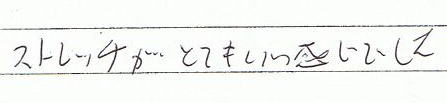 ストレッチがとてもいい感じでした